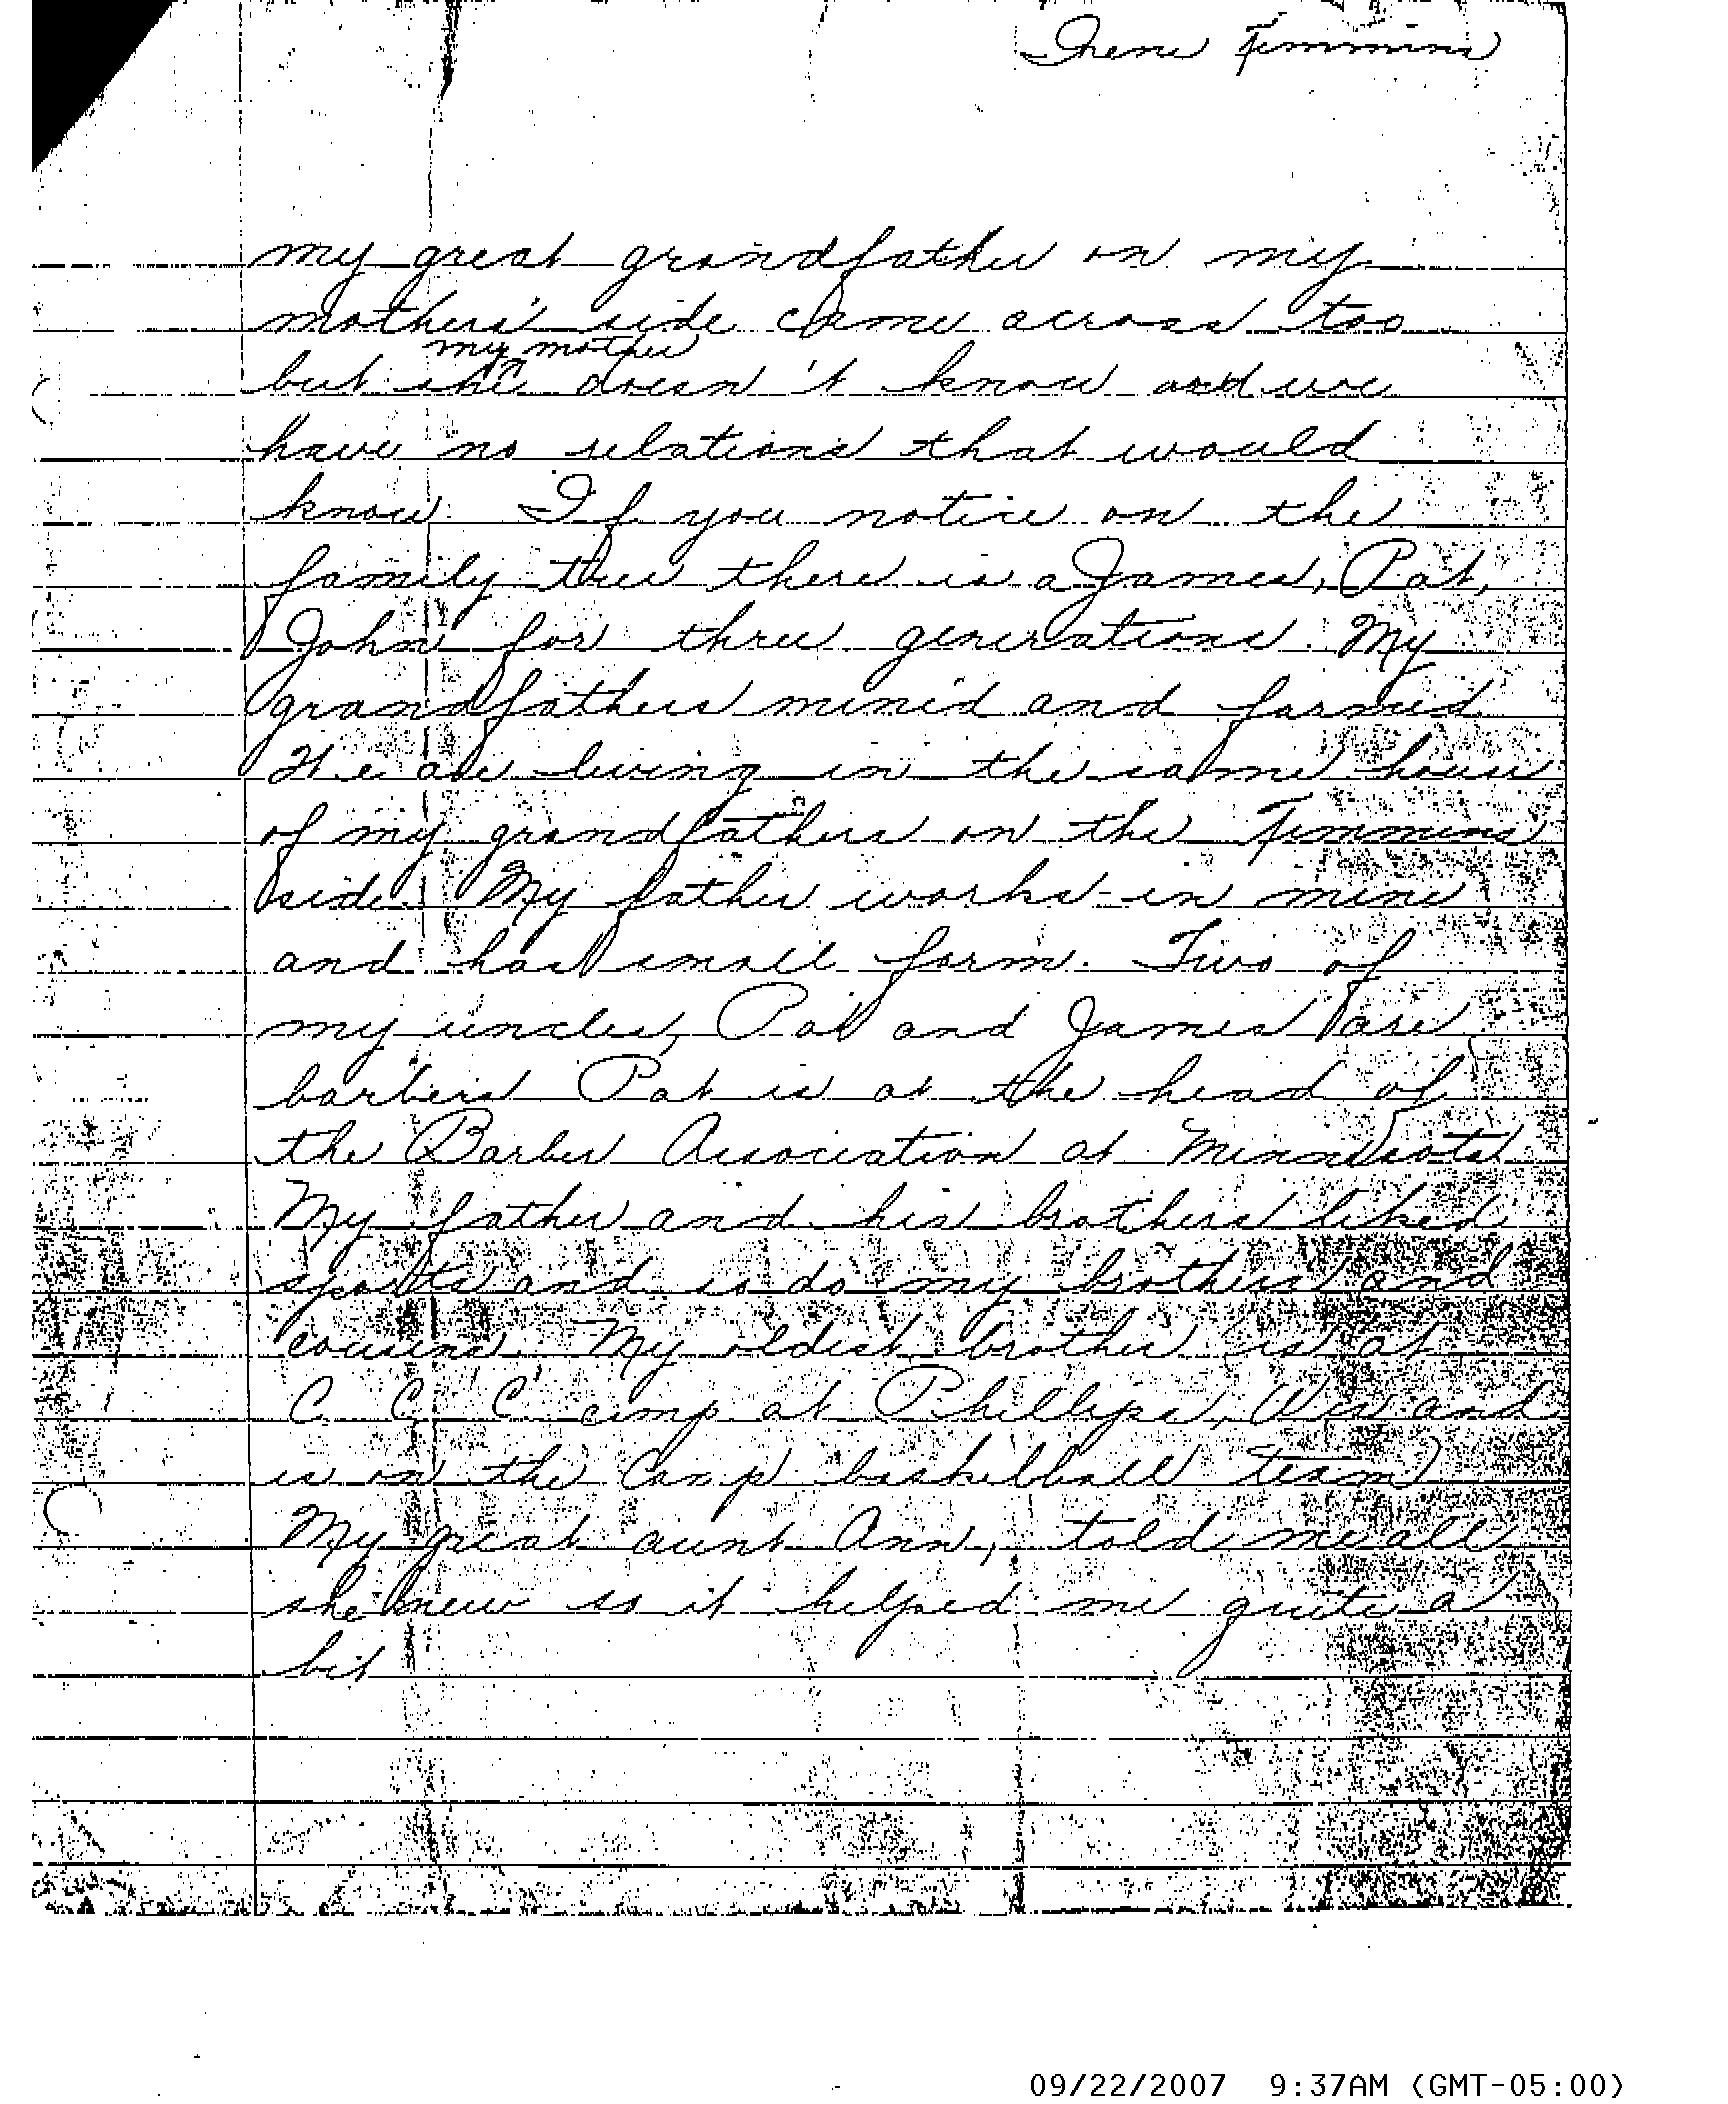 Irene Timmins
my great grandfather on my
mothers' side came across too
my mother
but she doesn't know and we
have no relations that would
know. If you notice on the
family tree there is a James, Pat,
John for three generations. My
grandfathers mined and farmed
We are living in the same house
of my grandfathers on the Timmins
side. My father works in mine
and has small farm. Two of
my uncles, Pat and James are
barbers Pat is at the head of
the Barber Association at Minnesota
My father and his brothers liked
sports and so do my brothers and
cousins. My oldest brother is at
C. C. C. camp at Phillips, Wis and
is on the Camp basketball team
My great aunt Ann, told me all
she knew so it helped me quite a
bit
09/22/2007 9:37AM (GMT-05:00)